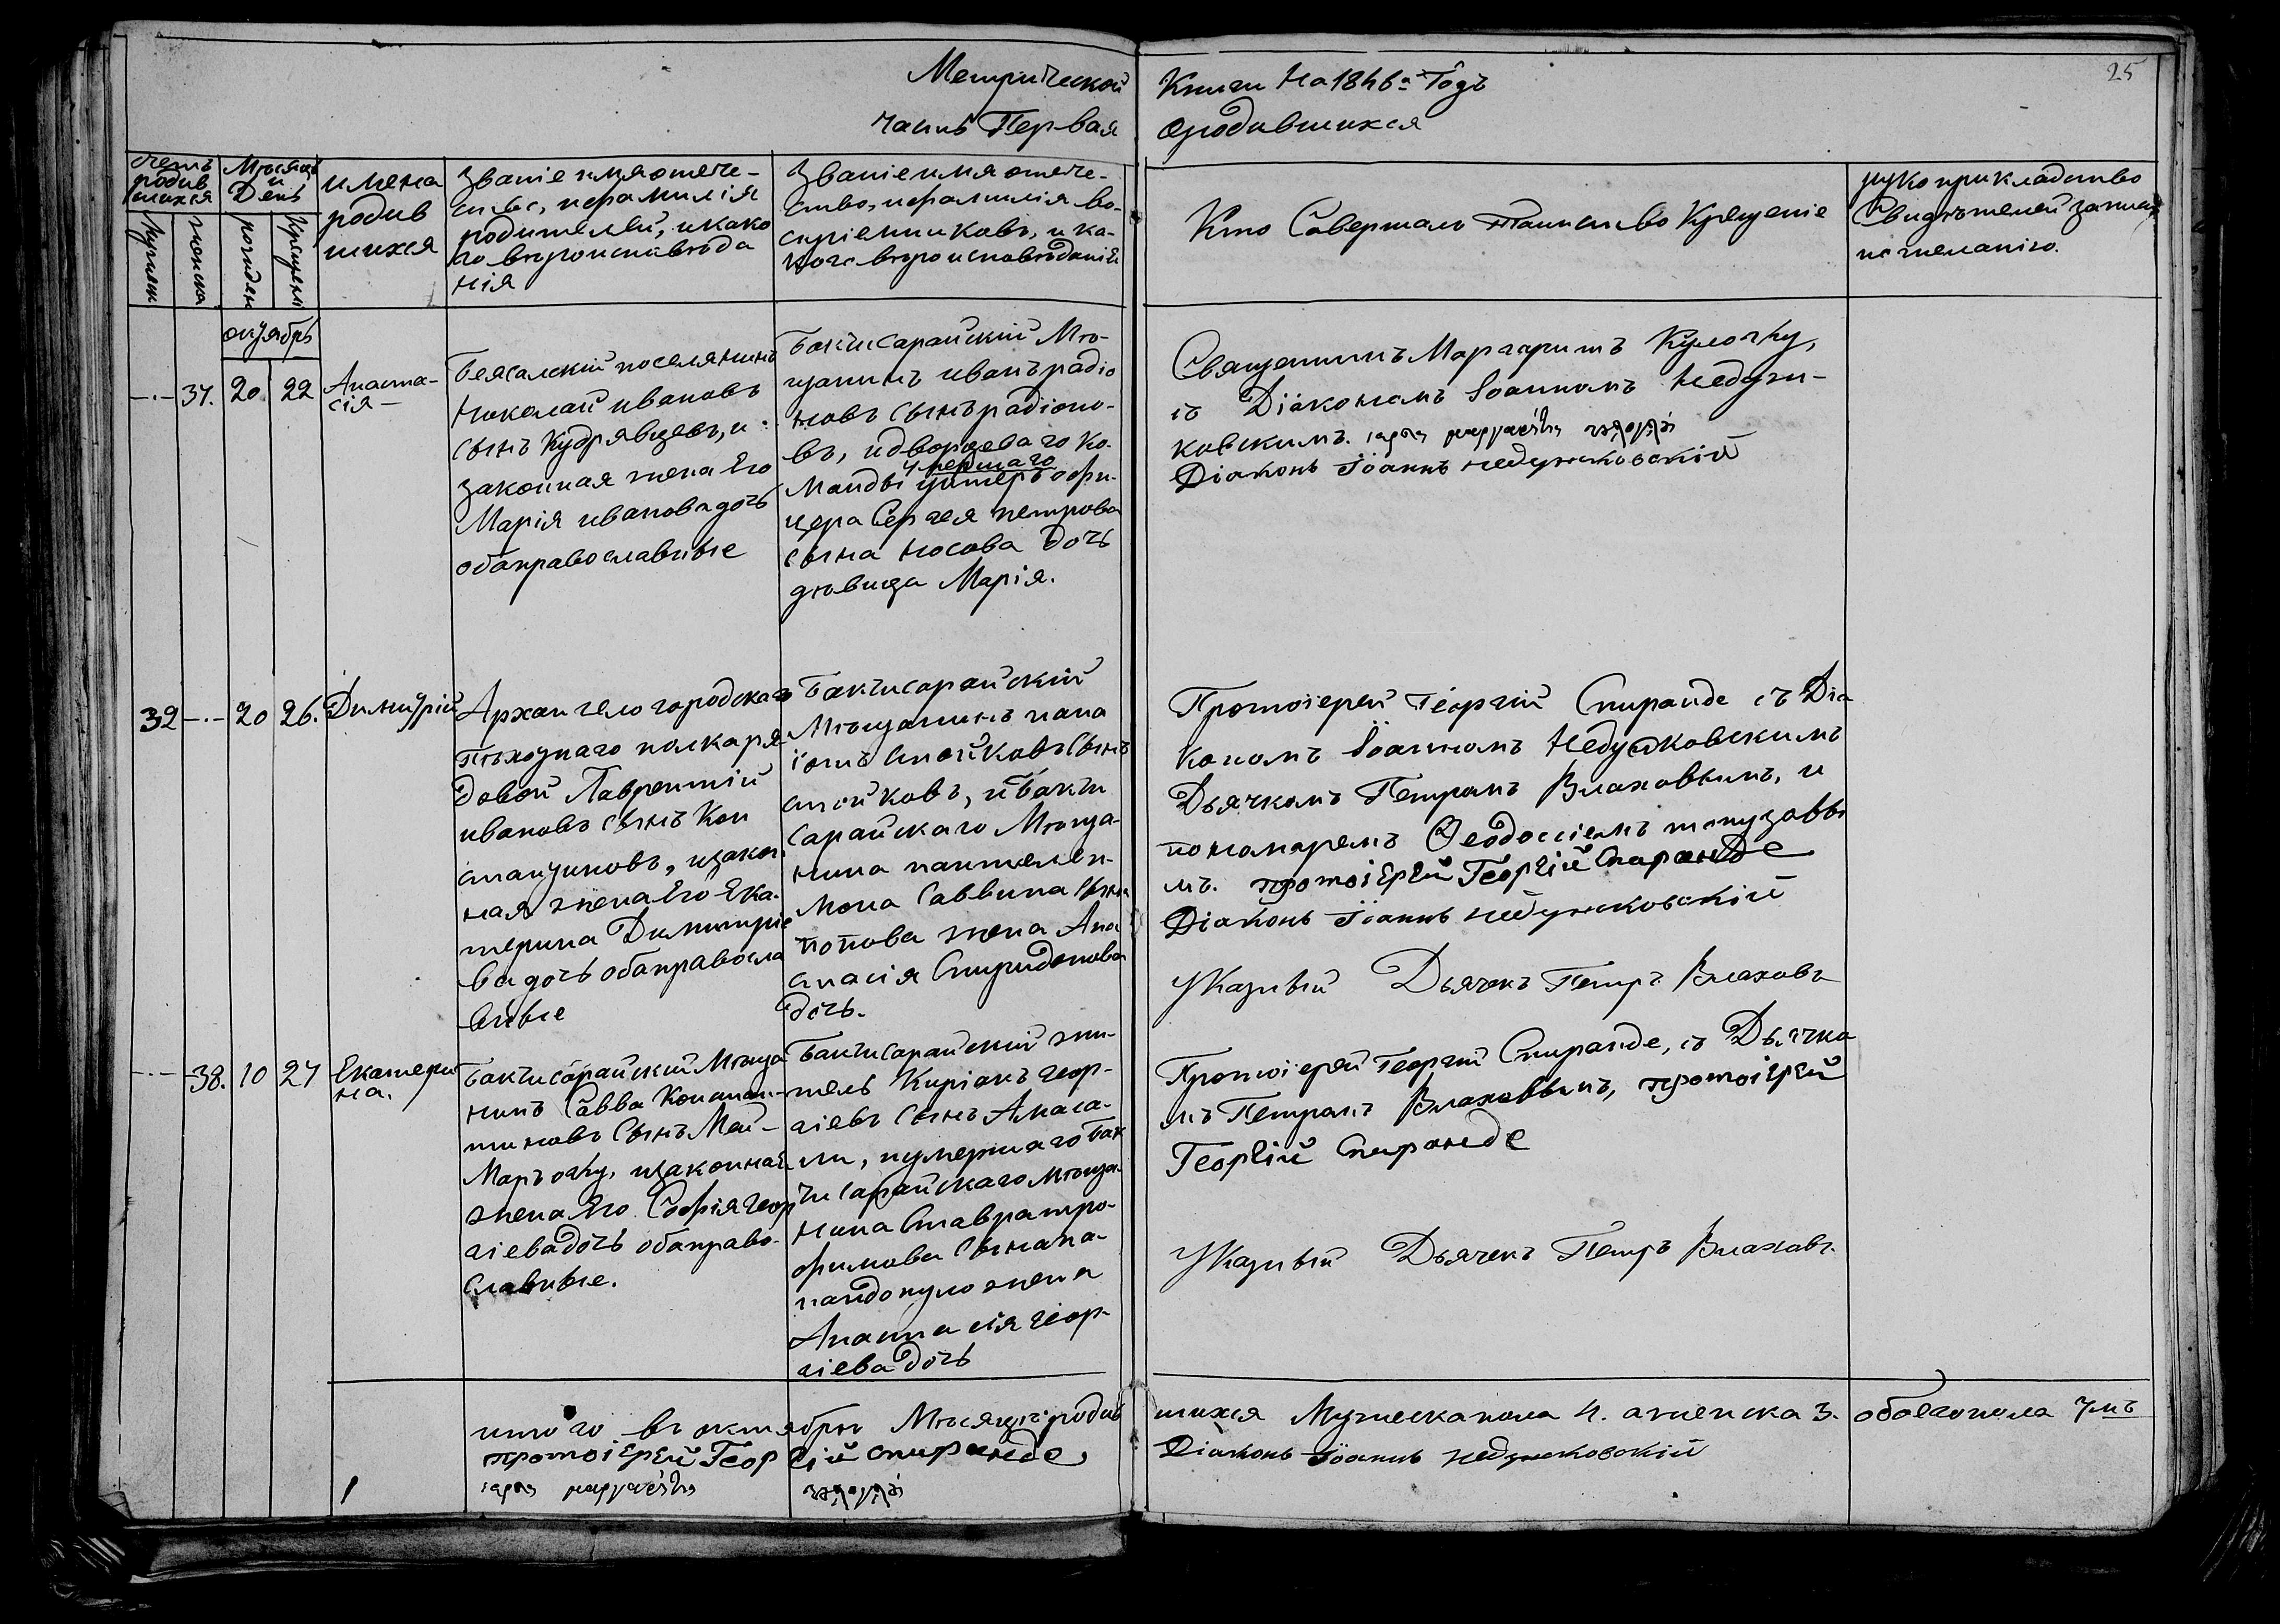 25
Метрической Книги на 1846й Годъ
часть Первая о родившихся
счетъ родившихся
Мѣсяцъ и День
имена родив шихся
званіе имя отече-
ство, и фамилія
родителей, и како
го вѣроисповѣда
нія
Званіе имя отече-
ство, и фамилія во-
спріемниковъ, и ка-
кого вѣроисповѣданія
Кто Совершалъ Таинство Крещеніе
рукоприкладство
Свидѣтелей записи
по желанію.
женска
рожден
крещен
октябрь
-·- 37. 20. 22 Анаста-
сія-
Беясалскій поселянинъ
Николай ивановъ
сынъ Кудрявцевъ, и
законная жена Его
Марія иванова дочь
оба православные
Бакчисарайскій Мѣ-
щанинъ иванъ радіо
новъ сынъ радіоно-
въ, и дворцоваго ко-
умершаго
манды унтеръ офи-
цера Сергея петрова
сына носова дочь
дѣвица Марія.
Священникъ Маргаритъ Кулочку,
съ Діакономъ Іоанномъ Недзел-
ковскимъ.
Діаконъ Іоаннъ недзелковскій
32 -·- 20 26. Димитрій
Архангелогородскаго
пѣхотнаго полка ря-
довой Лаврентій
ивановъ сынъ Кон
стантиновъ, и закон
ная жена Его Ека-
терина Димитріе
ва дочь оба правосла
вные
Бакчисарайскій
Мѣщанинъ пана
іотъ стойковъ сынъ
стойковъ, и бакчи
сарайскаго Мѣща-
нина пантелей-
мона Саввина сына
попова жена Ана
стасія Спиридонова
дочь.
Протоіерей Георгій Спиранде съ Діа
кономъ Іоанномъ Недзелковскимъ
Дьячкомъ Петромъ Влаховымъ, и
пономаремъ Ѳеодосіемъ топузовы
мъ. протоіерей Георгій Спиранде
Діаконъ Іоаннъ недзелковскій
Указный Дьячекъ Петръ Влаховъ
-·- 38. 10 27 Екатери
на.
Бакчисарайскій Мѣща
нинъ Савва Констан-
тиновъ сынъ Май-
Марьоглу, и законная
жена Его Софія геор
гіева дочь оба право-
славные.
Бакчисарайскій жи-
тель Киріакъ геор-
гіевъ сынъ Амаса-
ли, и умершаго бак
чисарайскаго мѣща-
нина Ставра тро-
фимова сына па-
пандопуло жена
Анастасія геор-
гіева дочь
Протоіерей Георгій Спиранде, съ Дьячко
мъ Петромъ Влаховымъ, протоіерей
Георгій Спиранде
Указный Дьячекъ Петръ Влаховъ.
итого въ октябрѣ Мѣсяцѣ родив шихся Мужеска пола 4. а женска 3. обоего пола 7мъ
протоіерей Георгій спиранде Діаконъ Іоаннъ недзелковскій